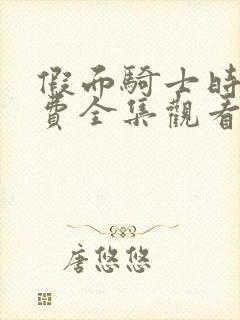 假面騎士時
費全集觀看
唐悠悠